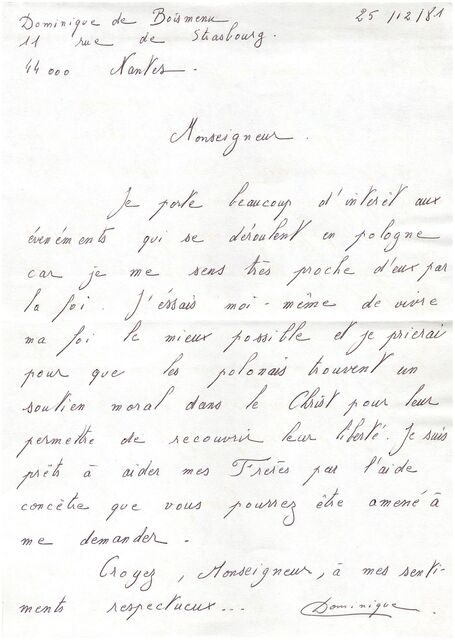 Dominique de Boismenu
25/12/81
11 rue de Strasbourg.
44000 Nantes.
Monseigneur.
Je porte beaucoup d'intérêt aux
événéments qui se déroulent en pologne
car je me sens très proche d'eux par
la foi. J'éssais moi-même de vivre
ma foi le mieux possible et je prierai
pour que les polonais trouvent un
soutien moral dans le Christ pour leur
permettre de recouvrir leur liberté. Je suis
prêts à aider mes Frères par l'aide
concètre que vous pourrez être amené à
me demander.
Croyez, Monseigneur, à mes senti-
ments respectueux...
Dominique.